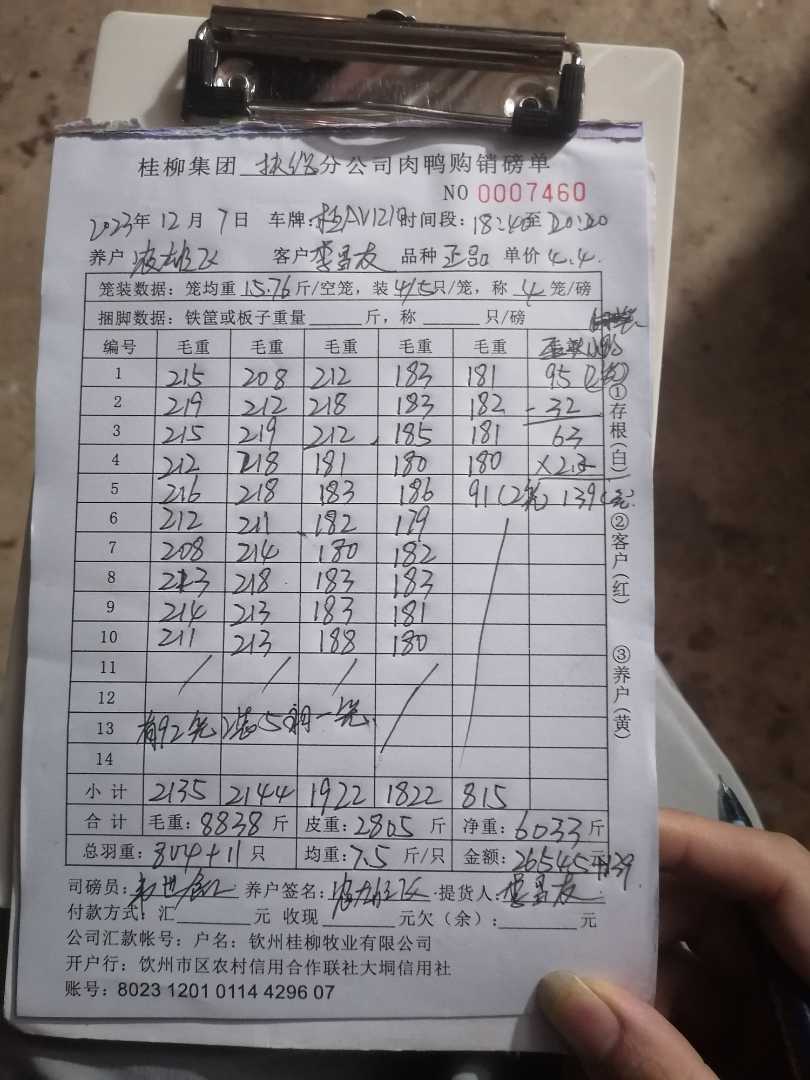 桂柳集团 分公司肉鸭购销磅单
NO 0007460
2023年 12月 7日 车牌:桂AV121 时间段:18:40至20:20
养户 客户 李昌友 品种 正品 单价 4.4.
笼装数据:笼均重 15.76 斤/空笼,装 4/5 只/笼,称 4 笼/磅
捆脚数据:铁筐或板子重量 斤,称 只/磅
编号 毛重 毛重 毛重 毛重 毛重
1 215 208 212 183 181 95
2 219 212 218 183 182 -32
3 215 219 212 185 181 63
4 212 218 181 180 180
5 216 218 183 186 91(2笼) 139
6 212 211 182 179
7 208 214 180 182
8 213 218 183 183
9 214 213 183 181
10 211 213 188 180
11
12
13 有92笼 装5只 一笼.
14
小计 2135 2144 1922 1822 815
合计 毛重:8838斤 皮重:2805斤 净重:6033斤
总羽重:804+11只 均重:7.5斤/只 金额:26545+139
司磅员: 养户签名: 提货人:李昌友
付款方式:汇 元 收现 元欠(余): 元
公司汇款帐号:户名:钦州桂柳牧业有限公司
开户行:饮州市区农村信用合作联社大垌信用社
账号:8023 1201 0114 4296 07
①存根(白)
②客户(红)
③养户(黄)